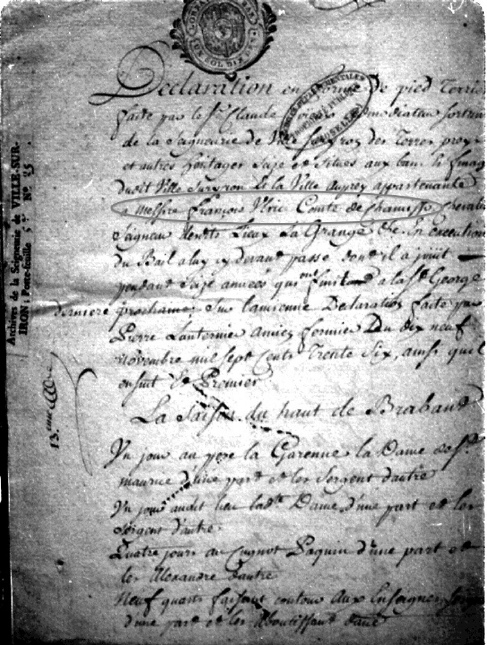 Declaration en forme de pied Terrier
faite par le Sr. Claude admodiateur sortant
de la Seigneurie de Ville Suryron des Terres prez
et autres heritages size et situes aux ban
dudit Ville Suryron et la Ville auprey appartenante
a messire françois Ulric Comte de Chamisso Chevalier
Seigneur desdits Lieux La Grange &c. En execution
du Bail a luy cy devant passé dont il a jouit
pendant seize années qui ont finit a la St. George
derniere prochaine Sur l'ancienne Declaration faite par
Pierre Lanternie ancien fermier Du dix neuf
novembre mil sept Cents Trente Six, ainsi quil
ensuit Et Premier
La Saison du haut de Brabant
Un jour au la Garenne la Dame de St.
maurice d'une part et les Sergent d'autre
Un jour audit lieu lad.te Dame d'une part et les
Sergent d'autre
Quatre jours au Cugnot Paquin d'une part et
les Alexandre d'autre
Neuf quarts faisant contour Aux
d'une part et les aboutissant d'autre
Archives de la Seigneurie de VILLE-SUR-
IRON : Porte-feuille 5e No 25.
13.eme